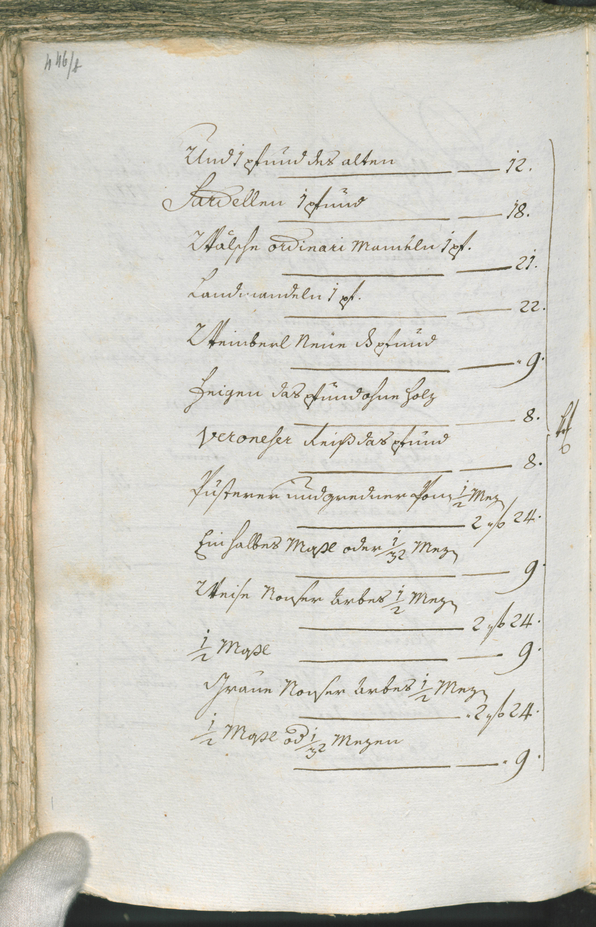 446/8
Und 1 pfund des alten
12.
Sardellen 1 pfund
18.
Wälsche ordinari Mandeln 1 pf.
21.
Landmandeln 1 pf.
22.
Weinberl Neue pfund
9.
Feigen das pfund ohne Holz
8.
Veroneser Reiß das pfund
8.
Pusterer und gredner 1/2 Mezn
2 f 24.
Ein halbes Maßl oder 1/32 Mezn
9
Weise Nonser Arbes 1/2 Mezn
2 f 24.
1/2 Maßl
9.
Graue Nonser Arbes 1/2 Mezn
2 f 24.
1/2 Maßl od 1/32 Mezen
9.